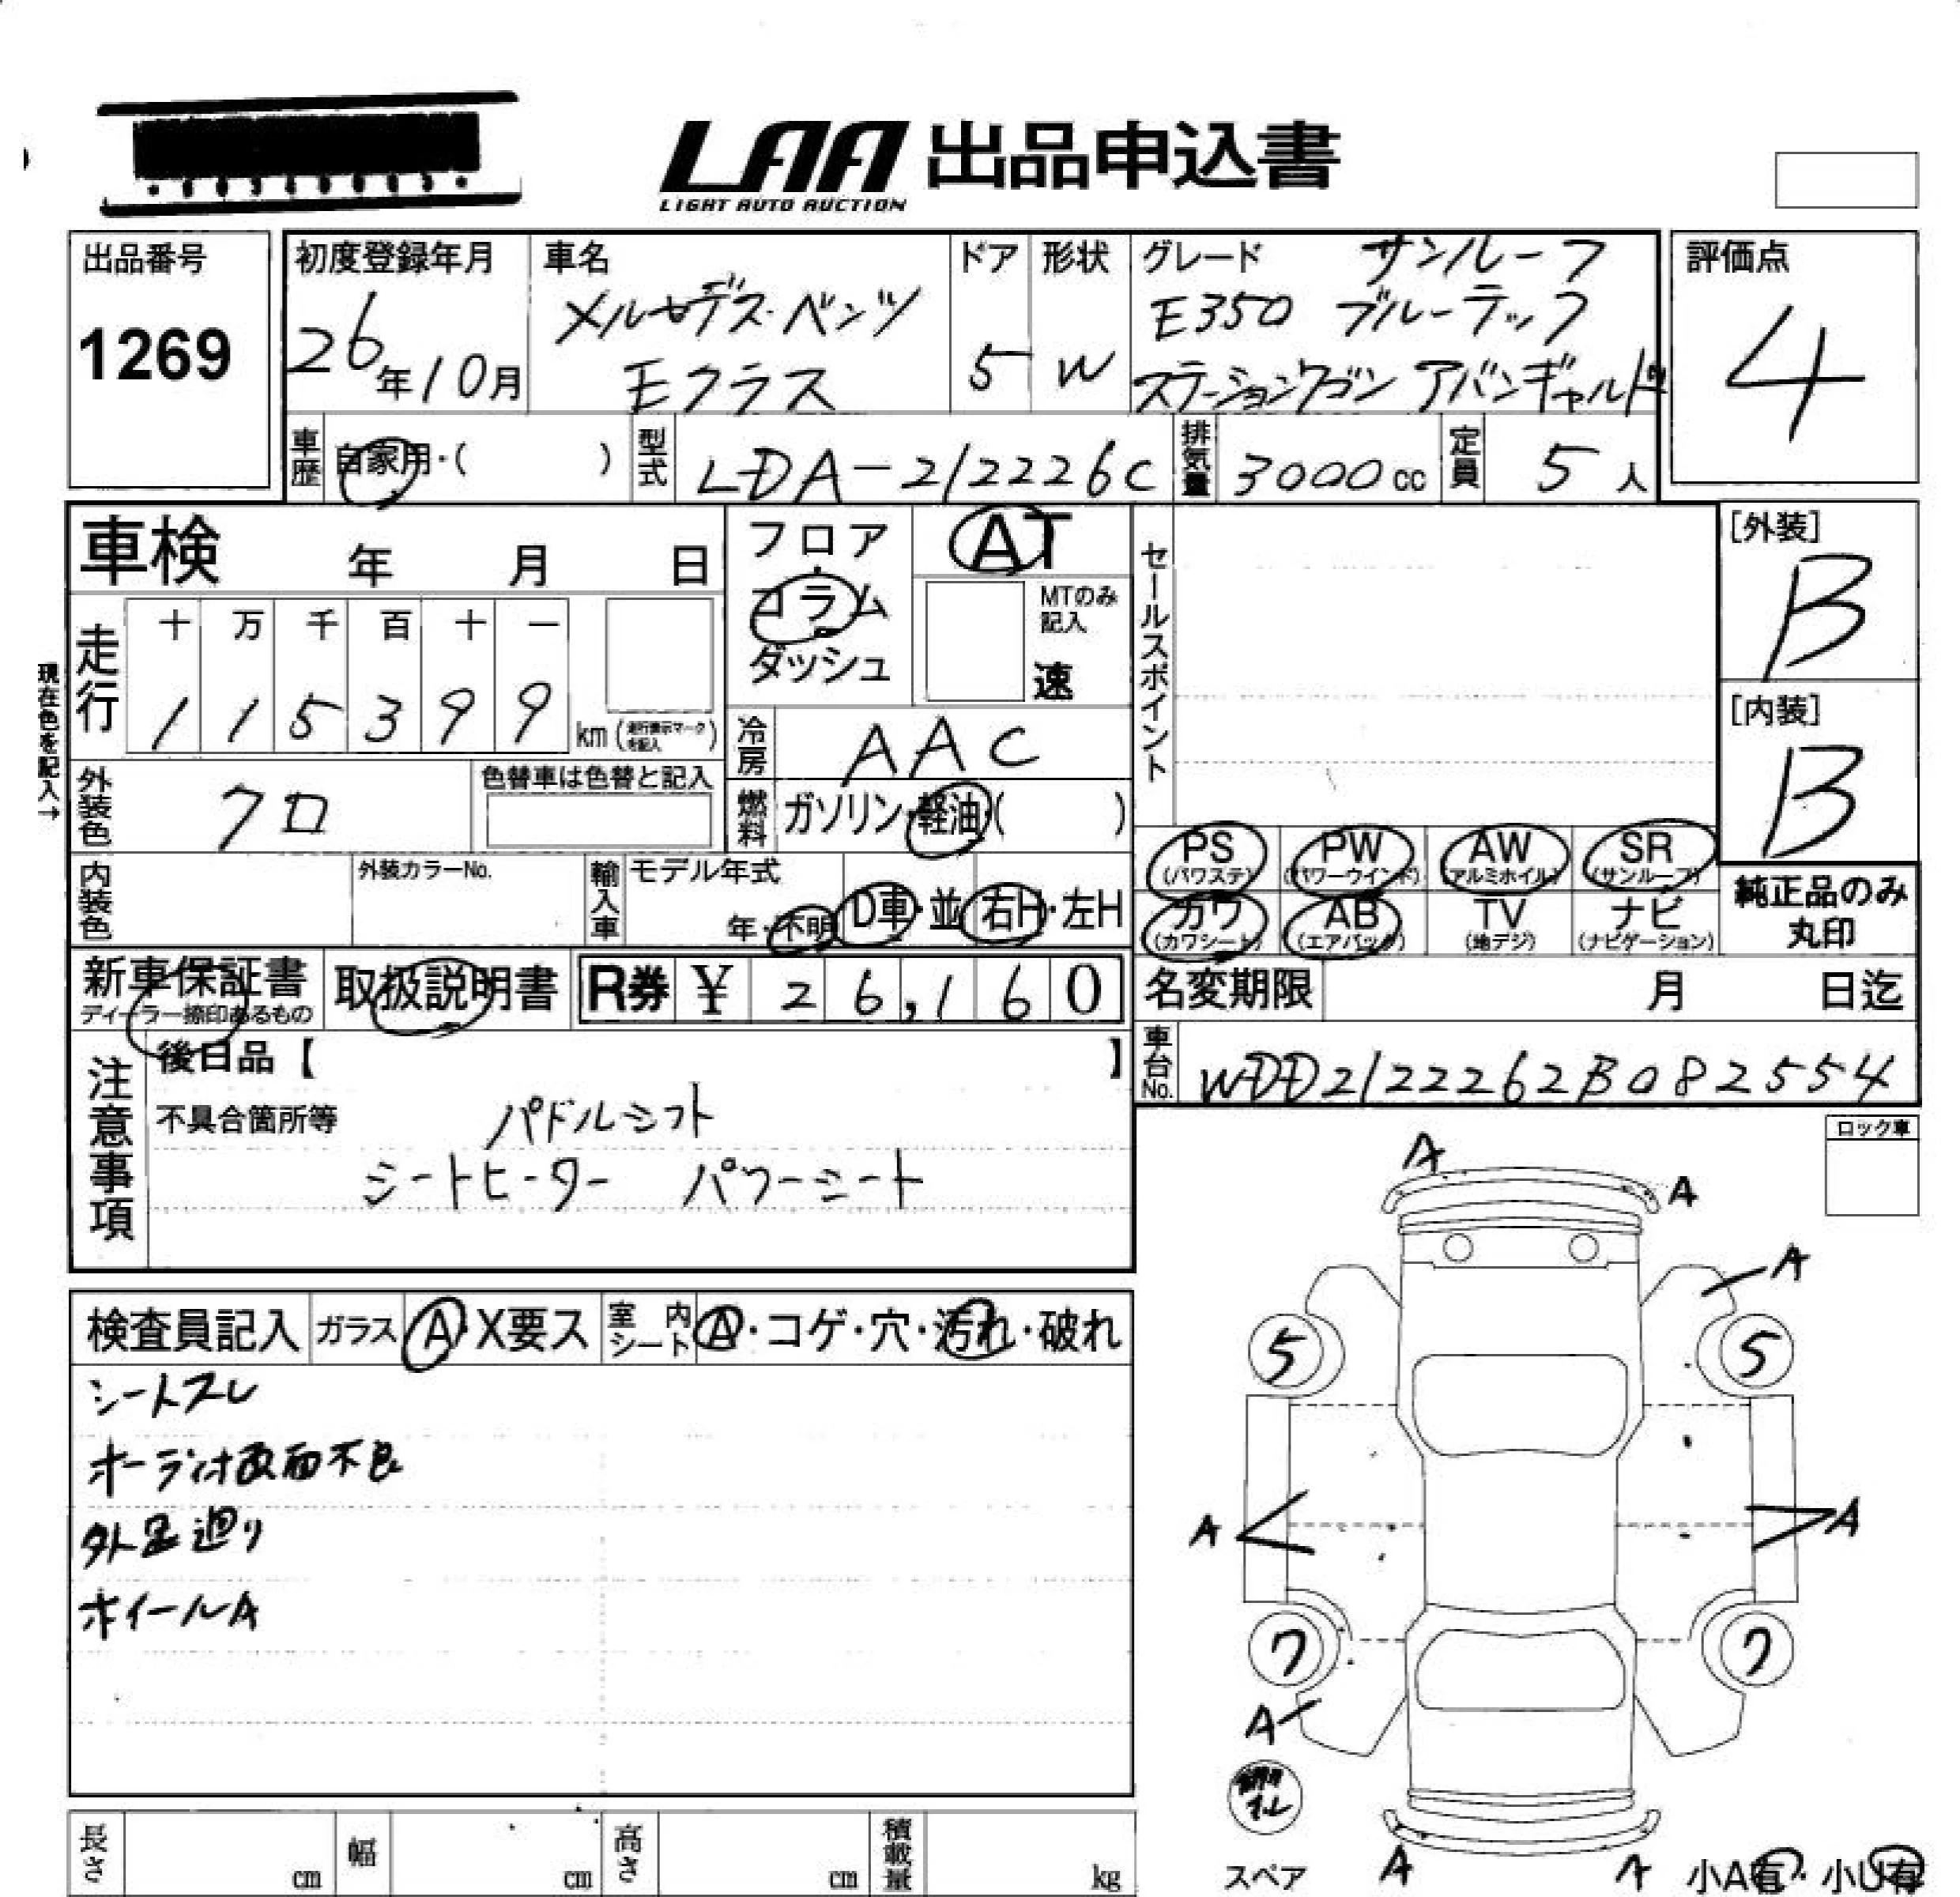 LAA 出品申込書
LIGHT AUTO AUCTION
出品番号
1269
初度登録年月
26年10月
車名
メルセデス・ベンツ
Eクラス
ドア
5
形状
W
グレード サンルーフ
E350 ブルーテック
ステーションワゴン アバンギャルド
評価点
4
車歴
自家用・( )
型式
LDA-212226C
排気量
3000cc
定員
5人
車検 年 月 日
フロア
コラム
ダッシュ
AT
MTのみ
記入
速
セールスポイント
[外装]
B
[内装]
B
現在色を記入→
走行
十 万 千 百 十 一
1 1 5 3 9 9 km (走行表示マークを記入)
冷房
AAC
外装色
クロ
色替車は色替と記入
燃料
ガソリン・軽油・( )
内装色
外装カラーNo.
輸入車
モデル年式
年・不明
D車・並
右H・左H
PS
(パワステ)
PW
(パワーウインド)
AW
(アルミホイル)
SR
(サンルーフ)
カワ
(カワシート)
AB
(エアバック)
TV
(地デジ)
ナビ
(ナビゲーション)
純正品のみ
丸印
新車保証書
ディーラー捺印あるもの
取扱説明書
R券 ¥ 26,160
名変期限 月 日迄
車台No.
WDD2122262B082554
注意事項
後日品【 】
不具合箇所等
パドルシフト
シートヒーター パワーシート
ロック車
検査員記入
ガラス
A・X要ス
室内
シート
A・コゲ・穴・汚れ・破れ
シートスレ
オーディオ画面不良
外足廻り
ホイールA
A
A
A
5
5
A
A
7
7
A
スペア
A
A
小A有・小U有
長さ cm
幅 cm
高さ cm
積載量 kg